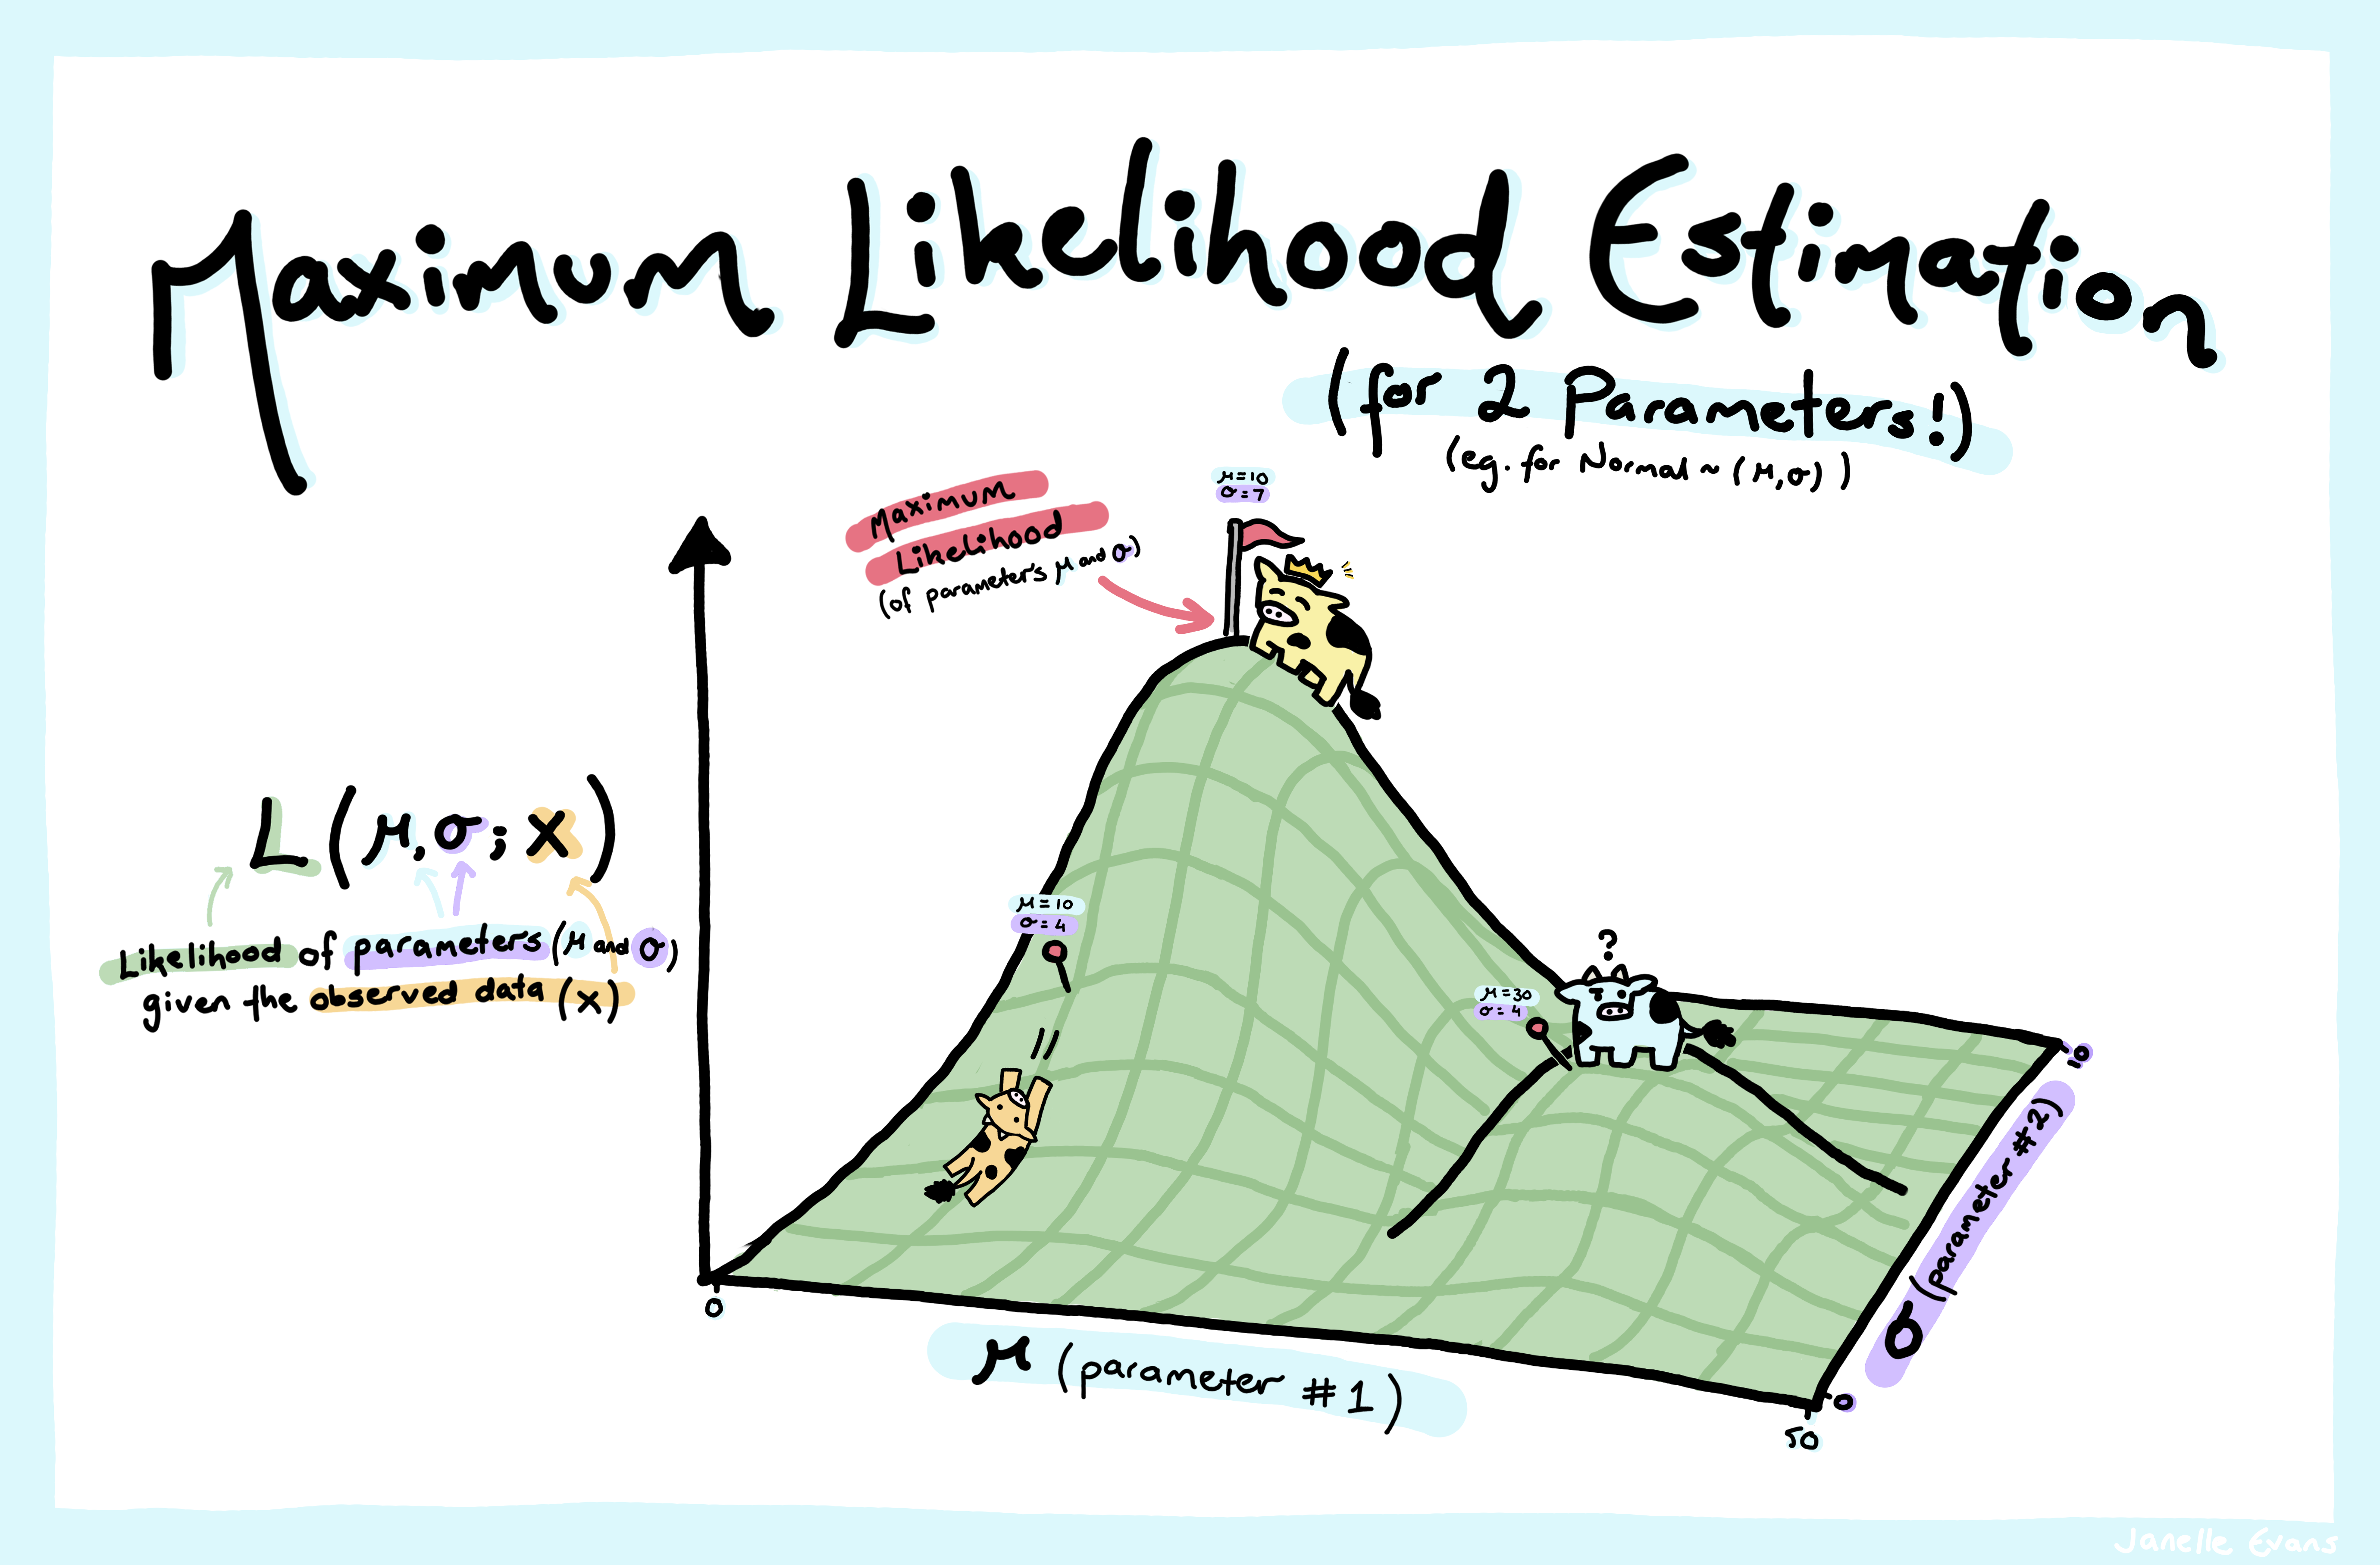 Maximum Likelihood Estimation
(for 2 Parameters!)
(eg. for Normal ~ (μ,σ))
Maximum
Likelihood
(of parameters μ and σ)
μ=10
σ=7
L (μ,σ; x)
Likelihood of parameters (μ and σ)
given the observed data (x)
μ=10
σ=4
?
μ=30
σ=4
0
μ (parameter #1)
50
0
σ (parameter #2)
10
Janelle Evans